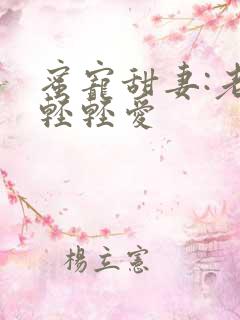 蜜寵甜妻:老
輕輕愛
楊立憲